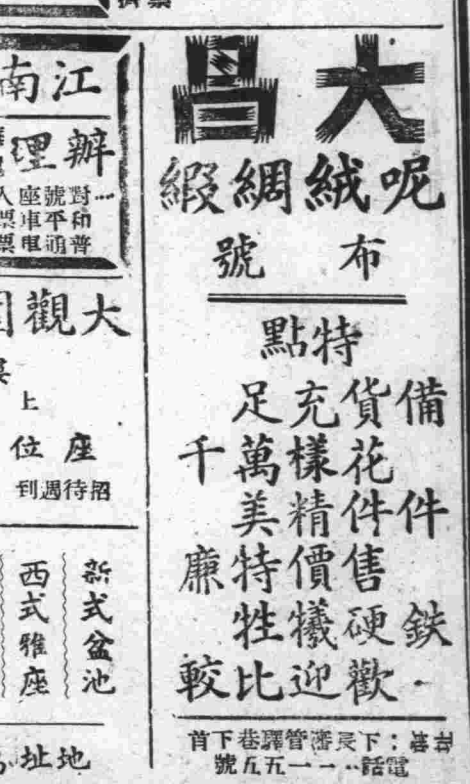 大昌
呢絨綢緞
布號
特點
備貨充足
花樣萬千
件件精美
售價特廉
鉄硬犧牲
歡迎比較
管驛巷下首
電話
江南
辦理
對號座
和平車票
普通車票
大觀
上
座位
招待週到
新式盆池
西式雅座
地址